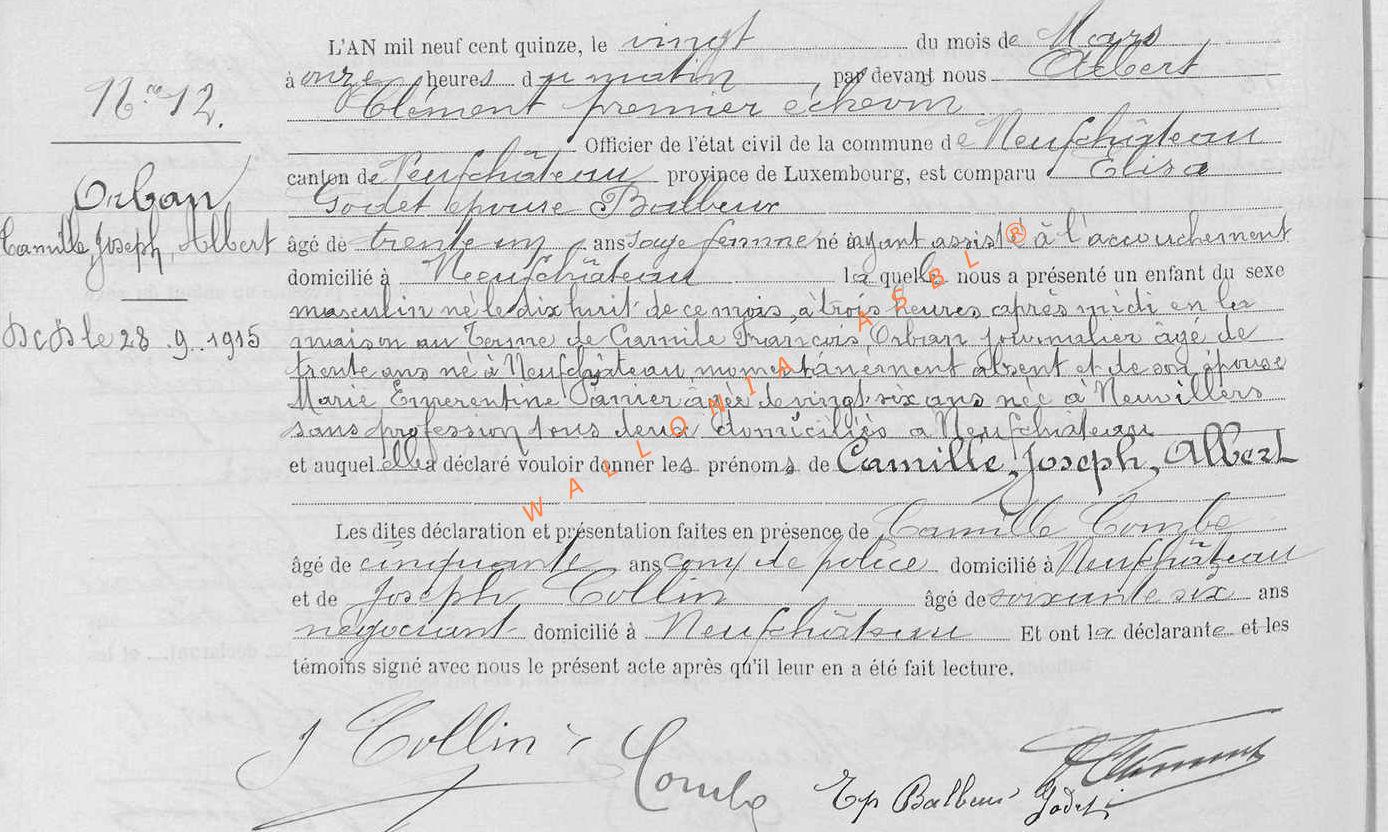 L'AN mil neuf cent quinze, le vingt du mois de Mars
à onze heures du matin, par devant nous Albert
Clément premier échevin
Officier de l'état civil de la commune de Neufchâteau
canton de Neufchâteau province de Luxembourg, est comparu Elisa
Godet épouse Balbeur
âgé de trente un ans sage femme né ayant assisté à l'accouchement
domicilié à Neufchâteau laquelle nous a présenté un enfant du sexe
masculin né le dix huit de ce mois, à trois heures après midi en la
maison au Terme de Camile François Orban journalier âgé de
trente ans né à Neufchâteau momentanément absent et de son épouse
Marie Emerentine âgée de vingt six ans née à Neuvillers
sans profession tous deux domiciliés a Neufchâteau
et auquel elle a déclaré vouloir donner les prénoms de Camille, Joseph, Albert
Les dites déclaration et présentation faites en présence de Camille Combe
âgé de cinquante ans com de police domicilié à Neufchâteau
et de Joseph Collin âgé de soixante six ans
négociant domicilié à Neufchâteau Et ont la déclarante et les
témoins signé avec nous le présent acte après qu'il leur en a été fait lecture.
N° 12.
Orban
Camille, Joseph, Albert
le 28.9.1915
J Collin
Combe
Ep Balbeur Godet
Clément
WALLONIA ASBL ®